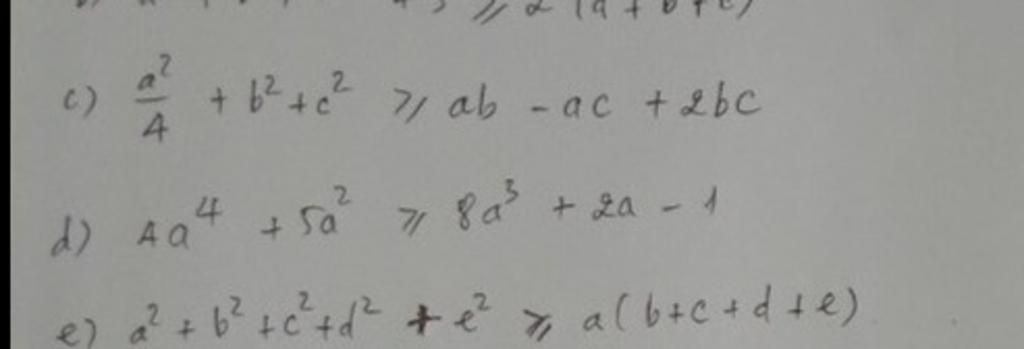 ≥ 2 (a + b + c)
c) a²/4 + b² + c² ≥ ab - ac + 2bc
d) 4a⁴ + 5a² ≥ 8a³ + 2a - 1
e) a² + b² + c² + d² + e² ≥ a(b + c + d + e)